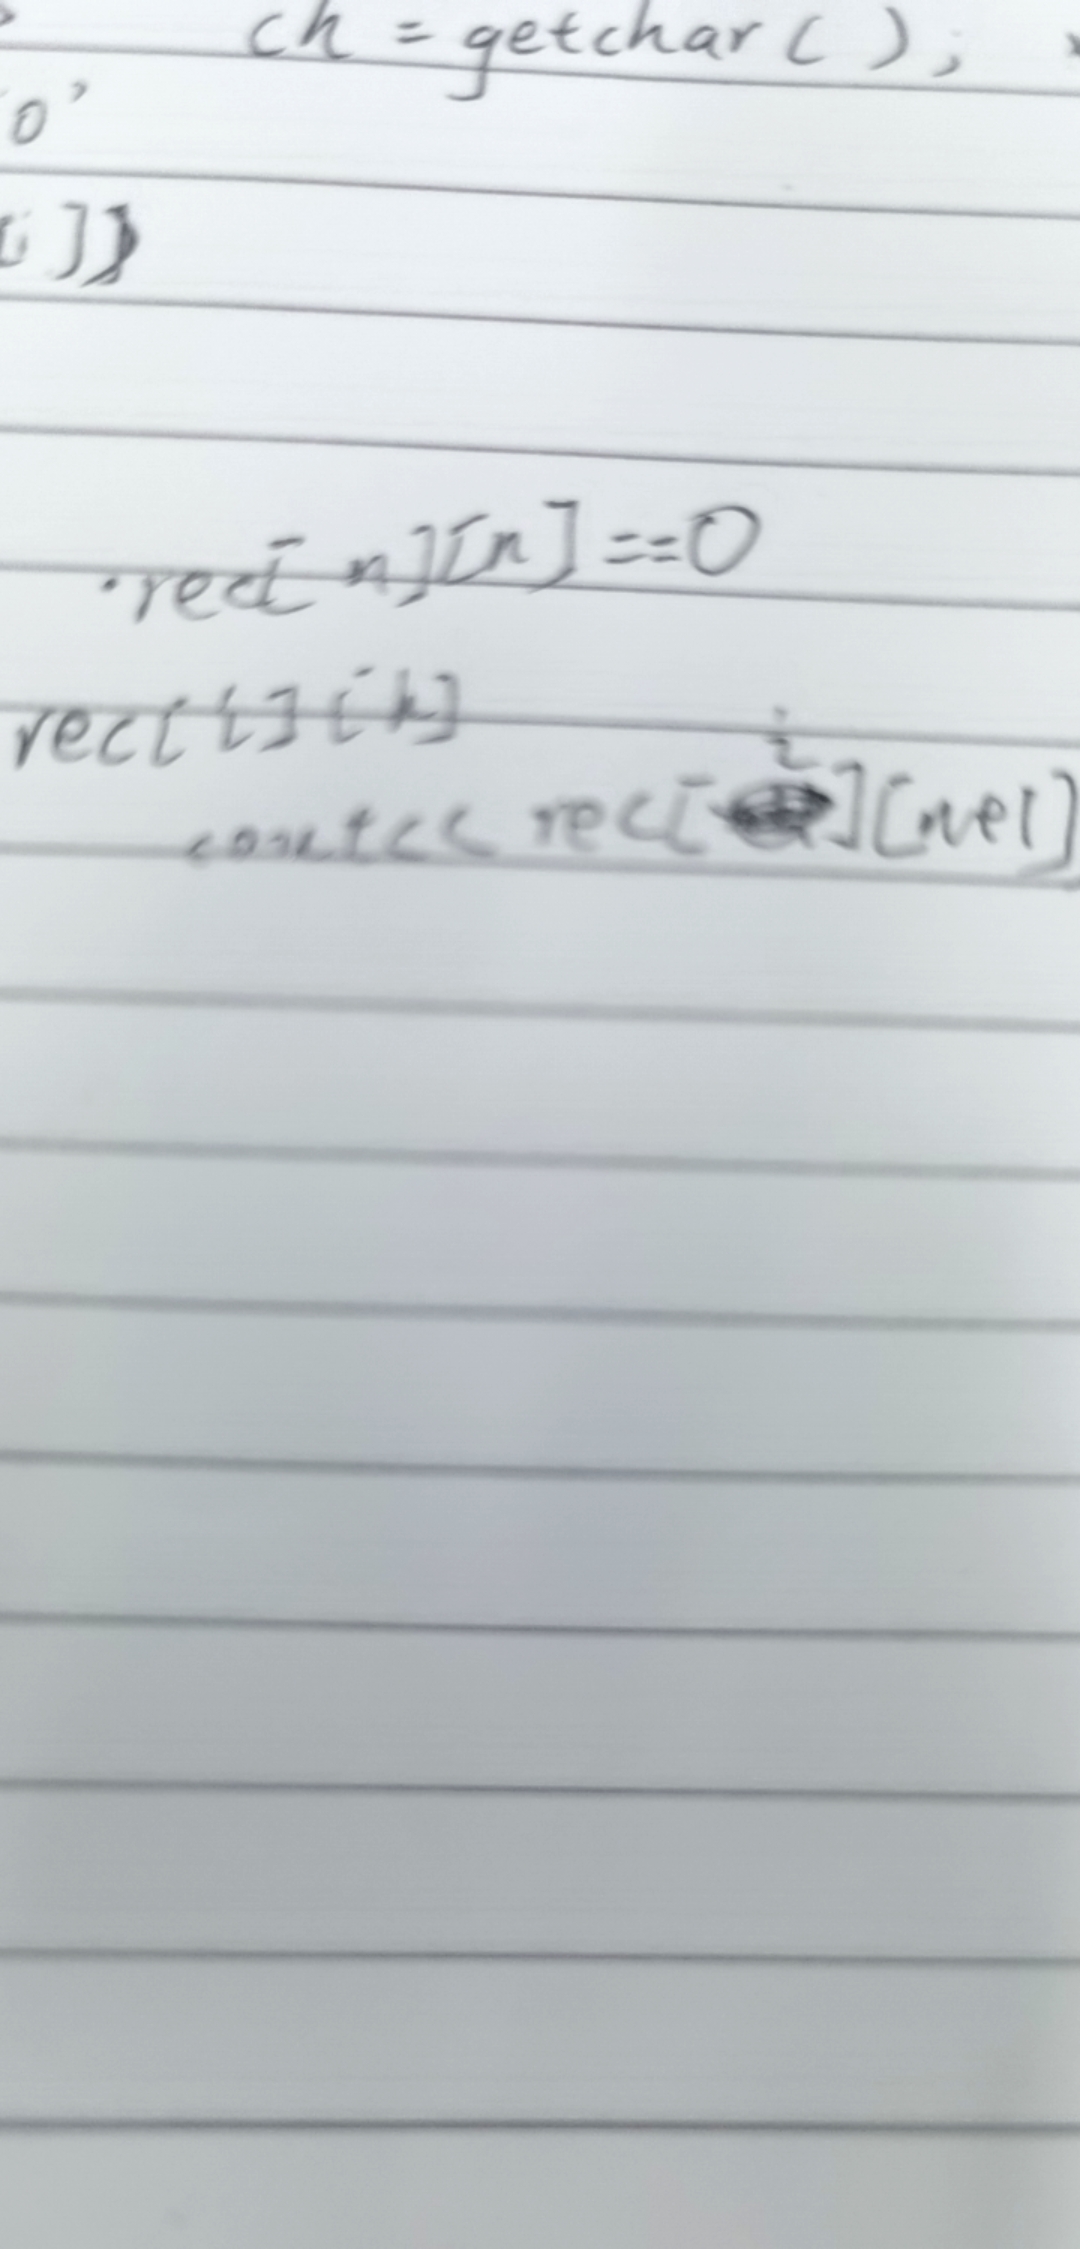 ch = getchar( );
0'
[i]}
rec[ n][n] ==0
rec[i][k]
cout<< rec[i][nel]